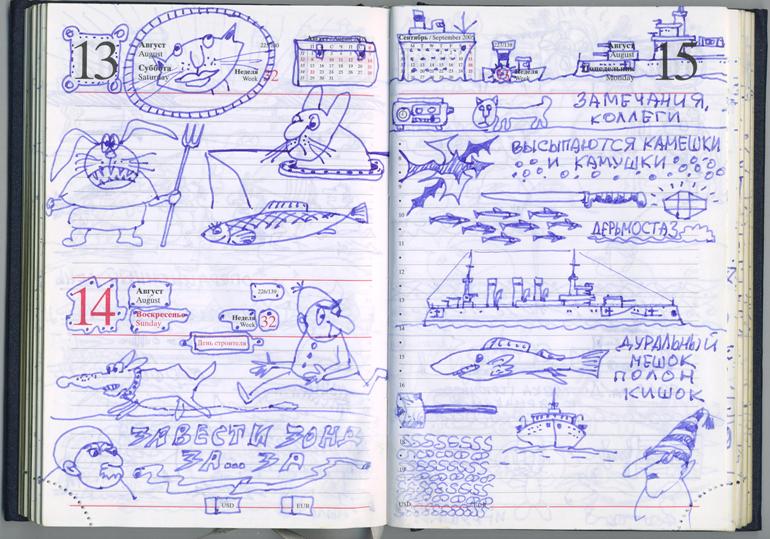 13
Август
August
Суббота
Saturday
225/140
Неделя
Week
32
14
Август
August
Воскресенье
Sunday
226/139
Неделя
Week
32
День строителя
ЗАВЕСТИ ЗОНД
ЗА... ЗА
USD
EUR
Сентябрь / September 2005
227/138
Неделя
Week
Август
August
Понедельник
Monday
15
ЗАМЕЧАНИЯ,
КОЛЛЕГИ
ВЫСЫПАЮТСЯ КАМЕШКИ
И КАМУШКИ
ДЕРЬМОСТАЗ
10
11
12
13
14
15
16
ДУРАЛЬНЫЙ
МЕШОК
ПОЛОН
КИШОК
18
19
USD